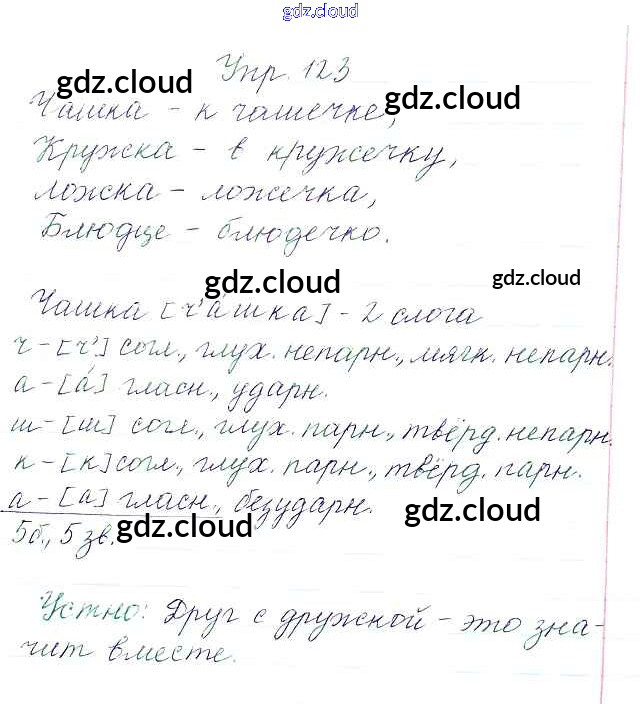 gdz.cloud
Упр. 123
gdz.cloud
gdz.cloud
Чашка - к чашечке,
Кружка - в кружечку,
ложка - ложечка,
Блюдце - блюдечко.
gdz.cloud
gdz.cloud
Чашка [ч'а́шка] - 2 слога
ч - [ч'] согл., глух. непарн., мягк. непарн.
а - [а́] гласн., ударн.
ш - [ш] согл., глух. парн., твёрд. непарн.
к - [к] согл., глух. парн., твёрд. парн.
а - [а] гласн., безударн.
gdz.cloud
gdz.cloud
5б., 5 зв.
Устно: Друг с дружкой - это зна-
чит вместе.